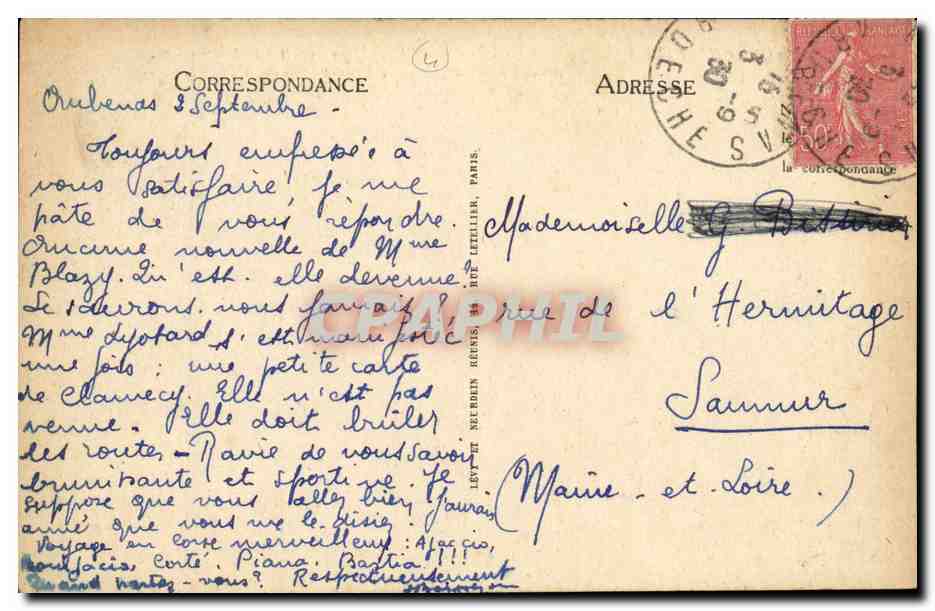 CORRESPONDANCE
Aubenas 2 Septembre -
Toujours empressée à
vous satisfaire je me
hâte de vous répondre.
Aucune nouvelle de Mme
Blazy. Qu'est-elle devenue?
Le saurons-nous jamais?
Mme Lyotard s'est manifestée
une fois : une petite carte
de Clamecy. Elle n'est pas
venue. Elle doit brûler
les routes - Ravie de vous savoir
brunissante et sportive. Je
suppose que vous allez bien. J'aurais
aimé que vous me le disiez.
Voyage en Corse merveilleux : Ajaccio,
Bonifacio, Corté, Piana, Bastia !!!
Quand partez-vous? Respectueusement
LÉVY ET NEURDEIN RÉUNIS, 44 RUE LETELLIER, PARIS.
4
ADRESSE
la correspondance
RÉPUBLIQUE FRANÇAISE
50c
Mademoiselle G
rue de l'Hermitage
Saumur
(Maine-et-Loire.)
CPAPHIL